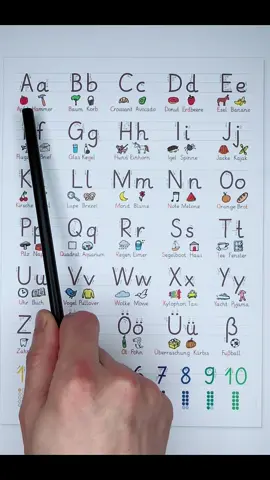 Aa Bb Cc Dd Ee
Hammer Baum Korb Croissant Avocado Donut Erdbeere Esel Banane
f Gg Hh Ii Jj
Glas Kegel Hund Einhorn Igel Spinne Jacke Kajak
K Ll Mm Nn Oo
Kirsche Lupe Brezel Mond Blume Note Melone Orange Brot
Pp Qq Rr Ss Tt
Pilz Quadrat Aquarium Regen Eimer Segelboot Haus Tee Fenster
Uu Vv Ww Xx Yy
Uhr Buch Vogel Pullover Wolke Möwe Xylophon Taxi Yacht Pyjama
Z Öö Üü ß
Öl Überraschung Kürbis Fußball
1 7 8 9 10